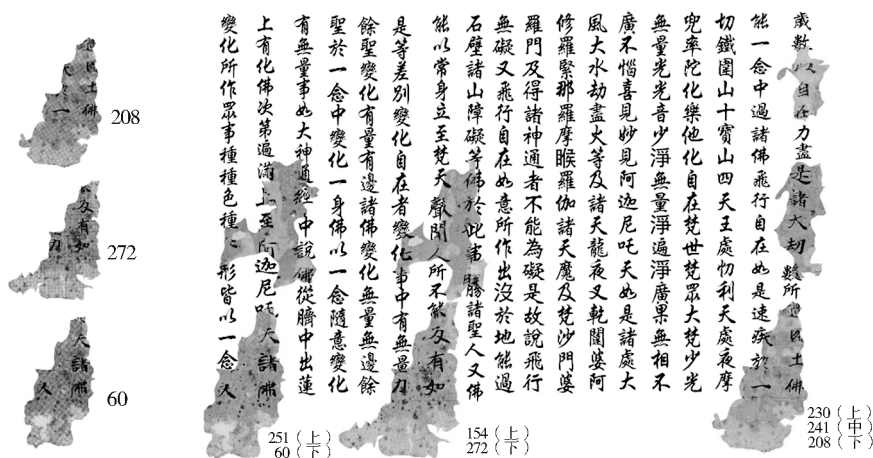 歲數以自在力盡是諸大劫數所過國土佛
能一念中過諸佛飛行自在如是速疾於一
切鐵圍山十寶山四天王處忉利天處夜摩
兜率陀化樂他化自在梵世梵眾大梵少光
無量光光音少淨無量淨遍淨廣果無相不
廣不惱喜見妙見阿迦尼吒天如是諸處大
風大水劫盡火等及諸天龍夜叉乾闥婆阿
修羅緊那羅摩睺羅伽諸天魔及梵沙門婆
羅門及得諸神通者不能為礙是故說飛行
無礙又飛行自在如意所作出沒於地能過
石壁諸山障礙等佛於此事勝諸聖人又佛
能以常身立至梵天聲聞人所不能及有如
是等差別變化自在者變化事中有無量力
餘聖變化有量有邊諸佛變化無量無邊餘
聖於一念中變化一身佛以一念隨意變化
有無量事如大神通經中說佛從臍中出蓮
上有化佛次第遍滿上至阿迦尼吒天諸佛
變化所作眾事種種色種〻形皆以一念又
230(上)
241(中)
208(下)
154(上)
272(下)
251(上)
60(下)
國土佛
於一
208
及有如
力
272
天諸佛
又
60